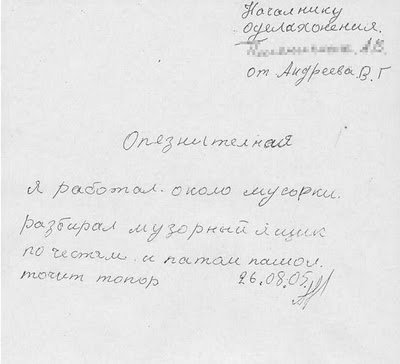 Началнику
оделахонения.
от Андреева В. Г
Опезнителная
я работал. около мусорки.
разбирал музорный ящик
по честям. и патам пашол.
точит топор 26.08.05.